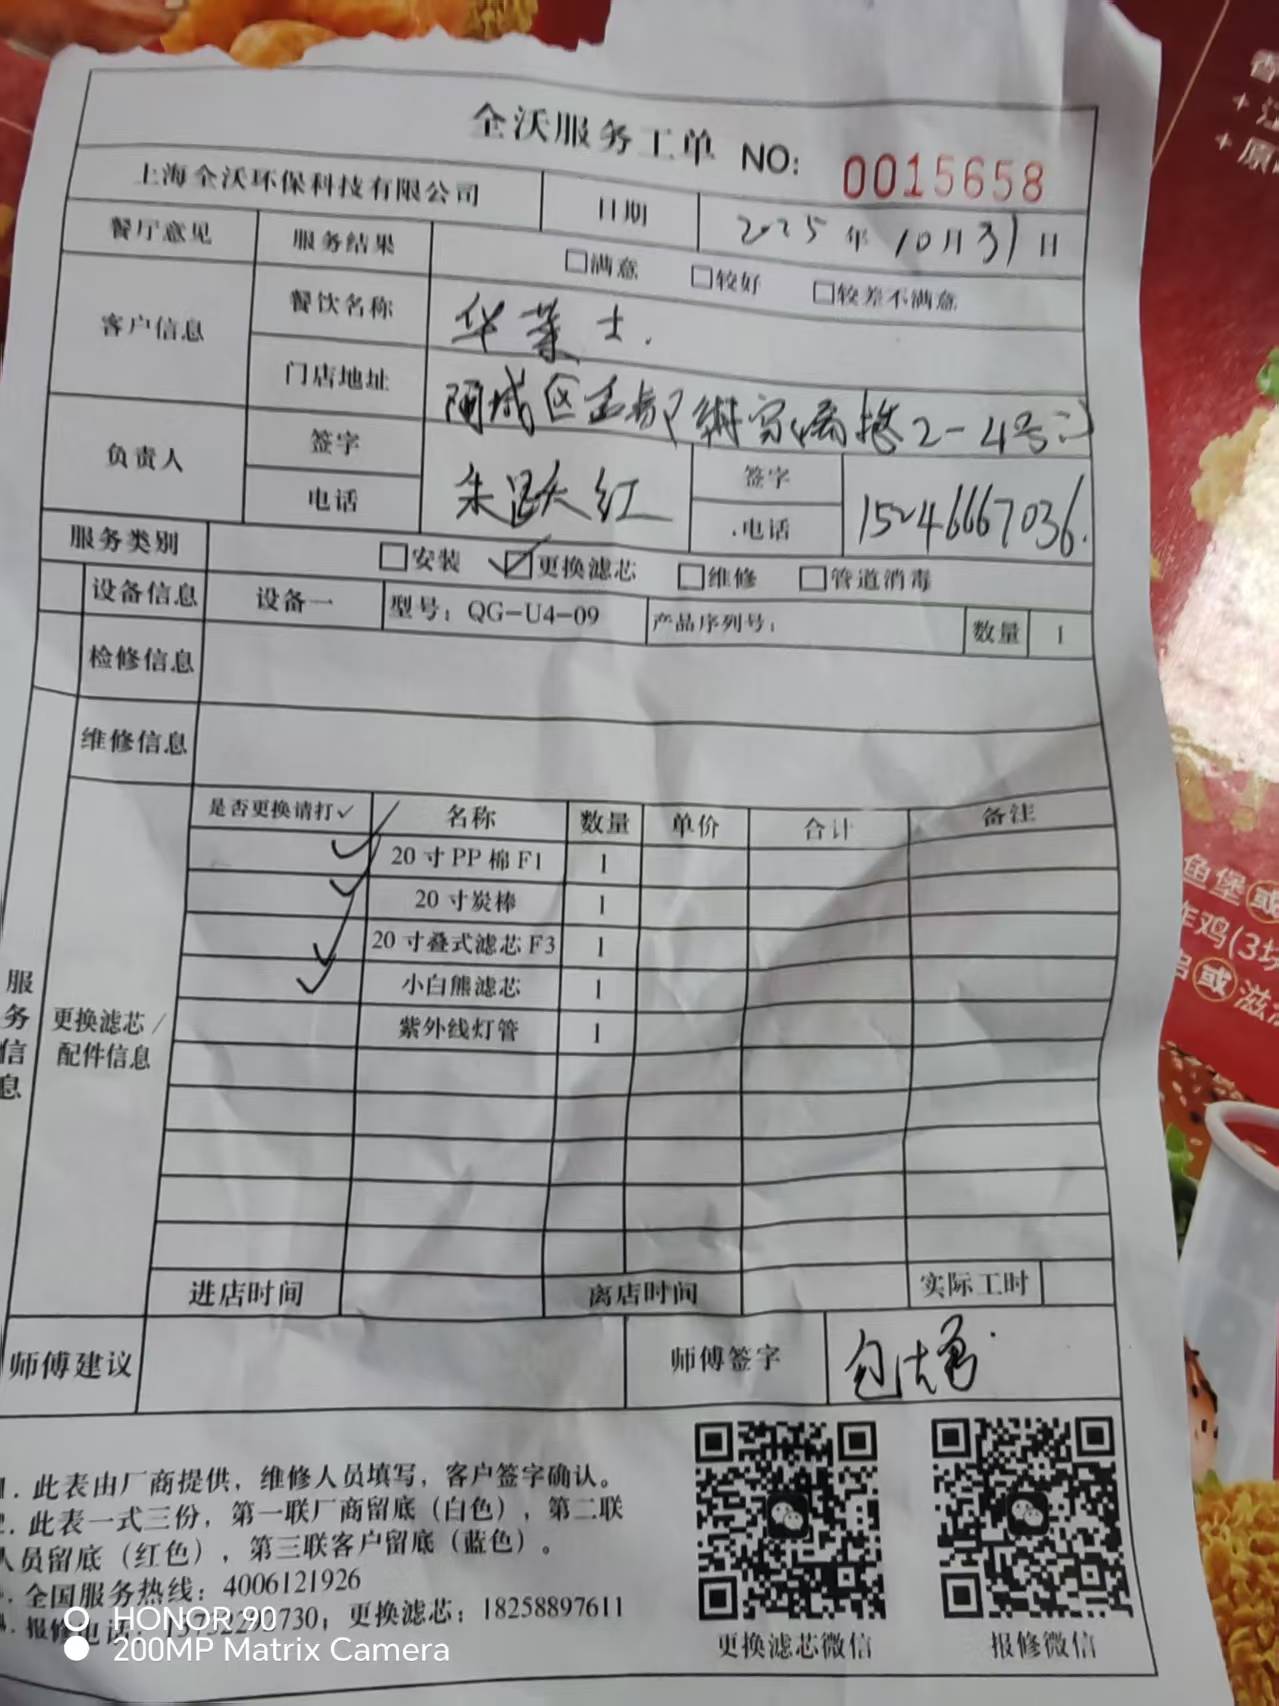 全沃服务工单 NO: 0015658
上海全沃环保科技有限公司 日期 2025年10月31日
餐厅意见 服务结果 □满意 □较好 □较差不满意
客户信息 餐饮名称 华莱士.
门店地址 阿城区金都 2-4号
负责人 签字 朱跃红 签字
电话 .电话 15246667036.
服务类别 □安装 ☑更换滤芯 □维修 □管道消毒
设备信息 设备一 型号: QG-U4-09 产品序列号: 数量 1
检修信息
维修信息
服务信息
更换滤芯/配件信息
是否更换请打✓ 名称 数量 单价 合计 备注
✓ 20寸PP棉F1 1
✓ 20寸炭棒 1
✓ 20寸叠式滤芯F3 1
✓ 小白熊滤芯 1
紫外线灯管 1
进店时间 离店时间 实际工时
师傅建议 师傅签字
1. 此表由厂商提供, 维修人员填写, 客户签字确认。
2. 此表一式三份, 第一联厂商留底(白色), 第二联
人员留底(红色), 第三联客户留底(蓝色)。
全国服务热线: 4006121926
报修电话: 更换滤芯: 18258897611
更换滤芯微信 报修微信
HONOR 90
200MP Matrix Camera
香
+ 江
+ 原
鱼堡 或
炸鸡(3块
或 滋